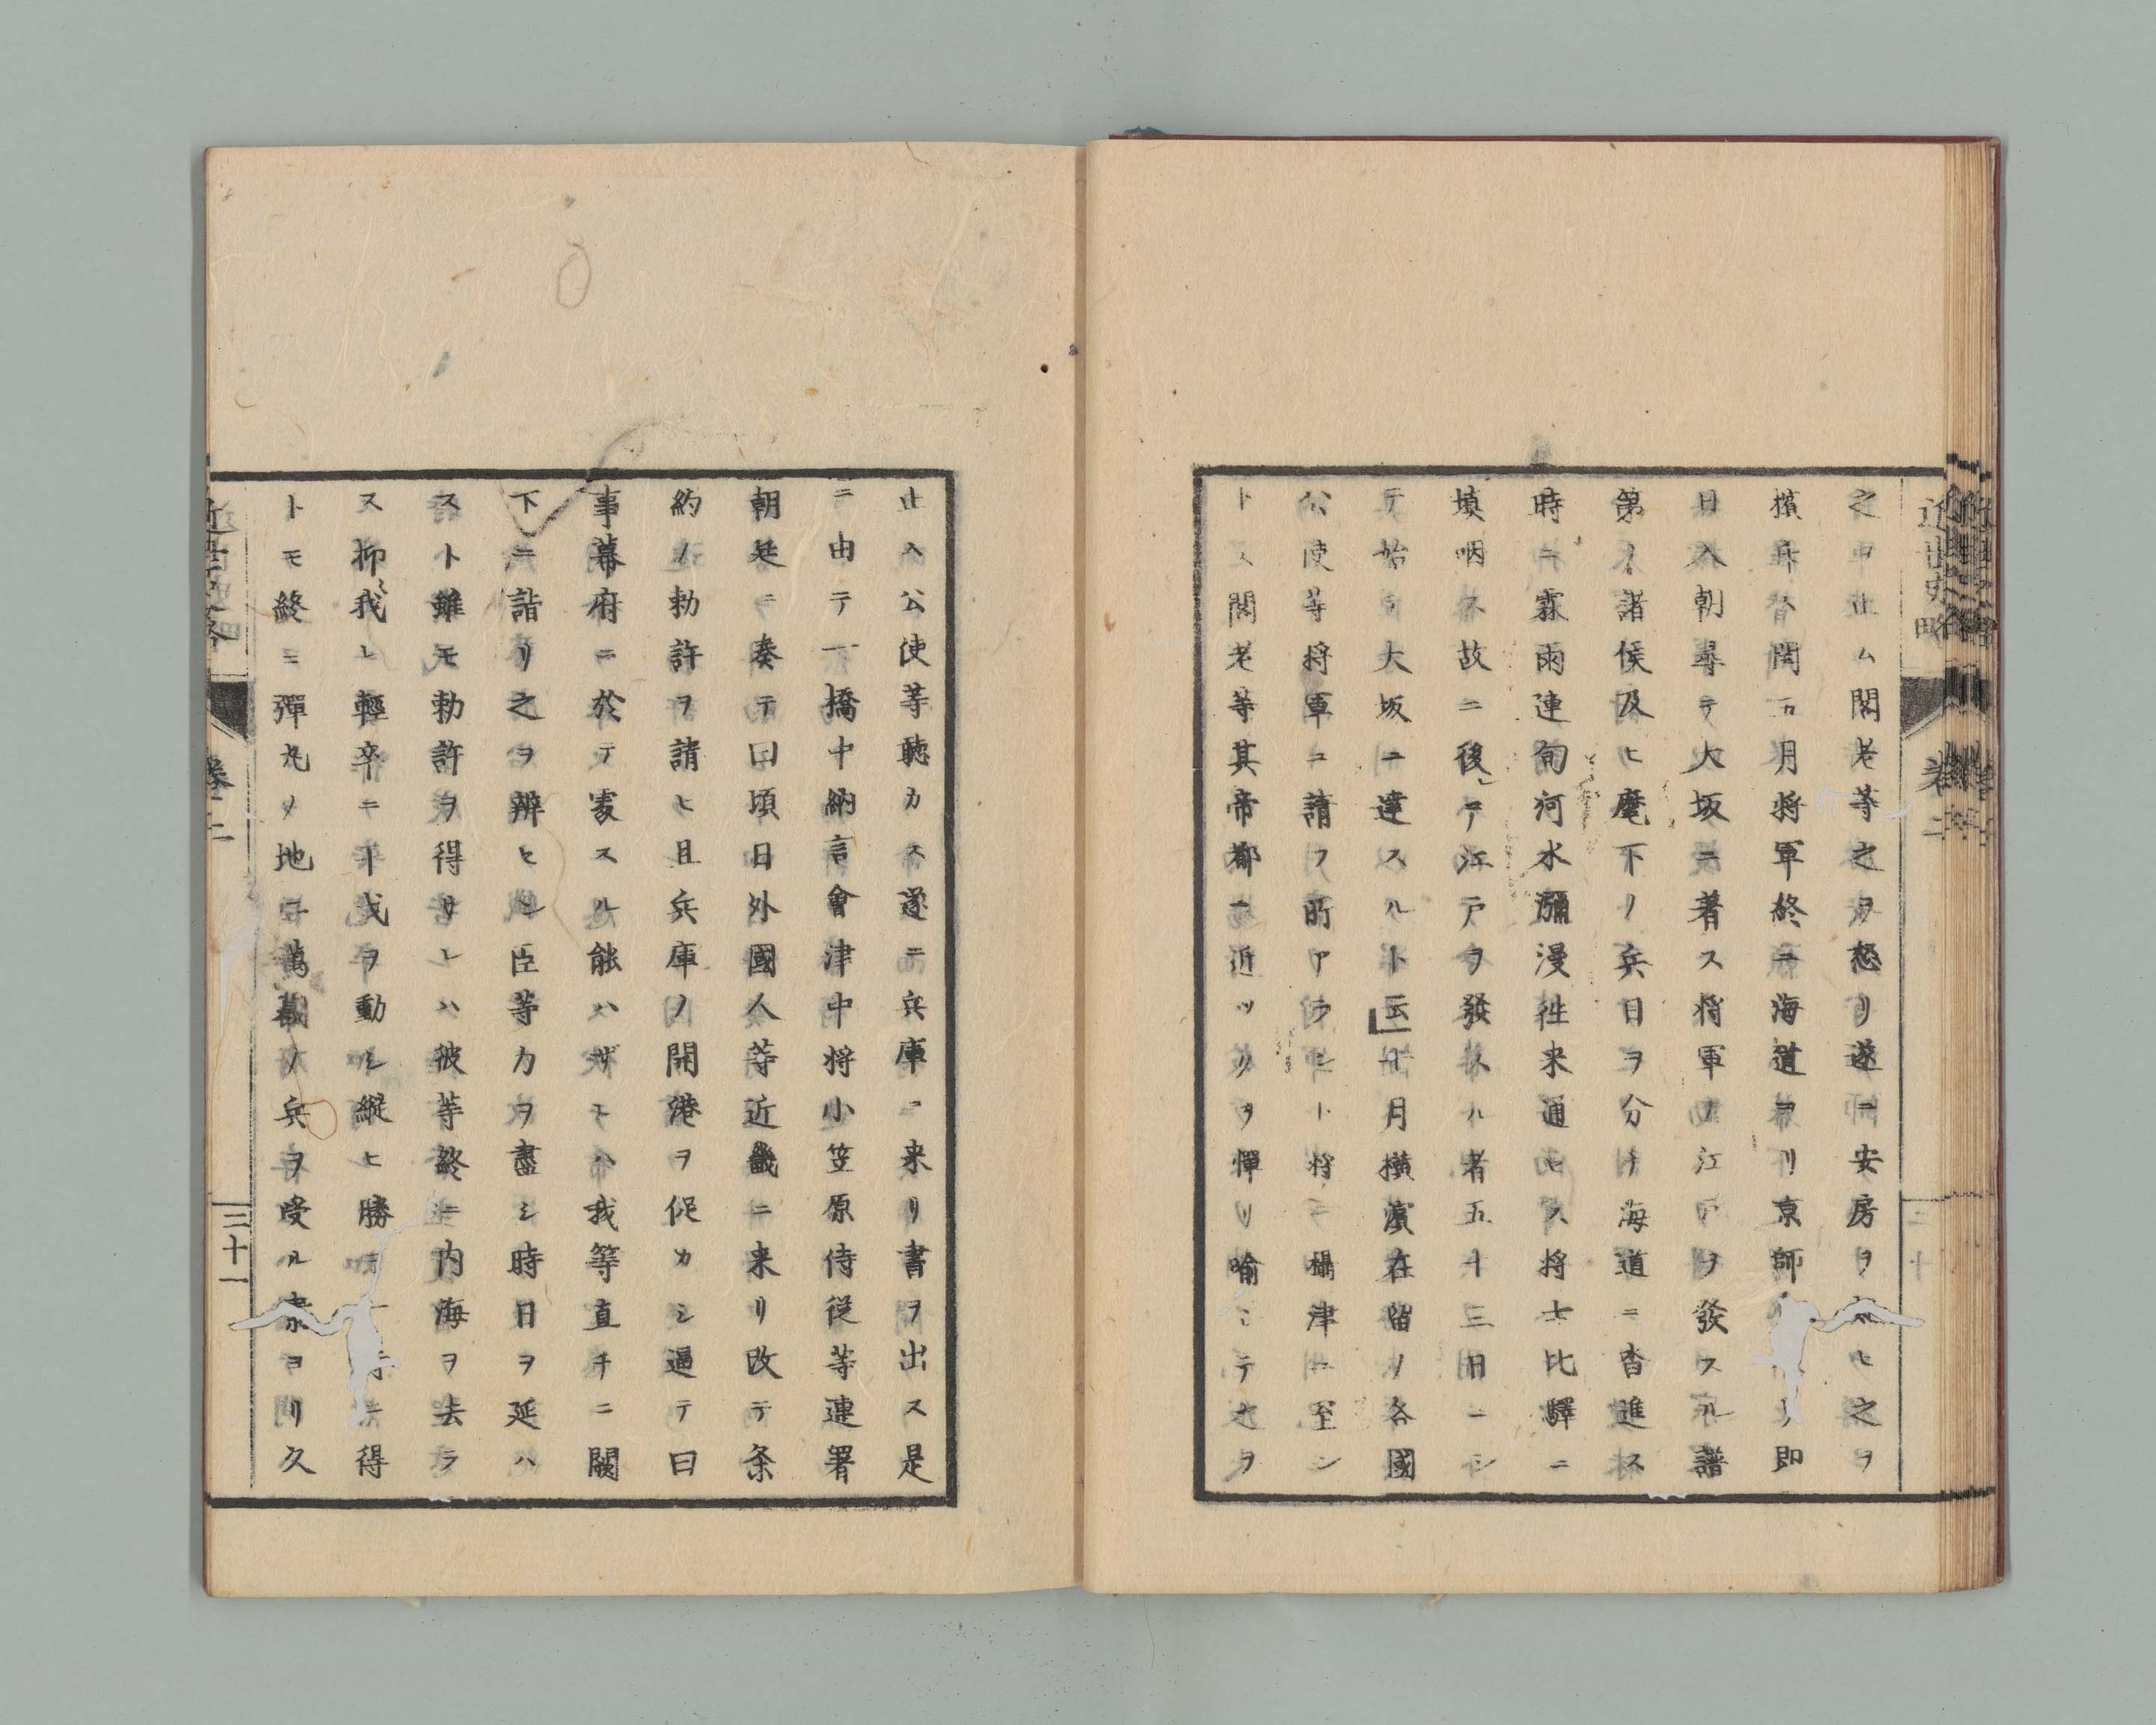 近世史略
卷二
三十
之ヲ止ム閣老等之ヲ怒リ遂ニ安房ヲ
ヒ之ヲ
擯斥ス閏五月将軍終ニ海道ヨリ京師
リ即
日入朝尋テ大坂ニ著ス将軍ノ江戸ヲ發スル譜
第ノ諸侯及ヒ麾下ノ兵日ヲ分チ海道ニ沓進ス
時ニ霖雨連旬河水瀰漫徃来通セス将士比驛ニ
填咽ス故ニ後レテ江戸ヲ發スル者五十三日ニシ
テ始テ大坂ニ達スルト云
月横濱在留ノ各國
公使等将軍ニ請フ所アラントシ将ニ攝津ニ至ン
トス閣老等其帝都ニ近ツクヲ憚リ喩シテ之ヲ
止ム公使等聽カス遂ニ兵庫ニ来リ書ヲ出ス是
ニ由テ一橋中納言會津中将小笠原侍従等連署
朝廷ニ奏テ曰頃日外國人等近畿ニ来リ改テ条
約ノ勅許ヲ請ヒ且兵庫ノ開港ヲ促カシ逼テ曰
事幕府ニ於テ裁スル能ハザレハ我等直チニ闕
下ニ詣リ之ヲ辨セント臣等力ヲ盡シ時日ヲ延ハ
スト雖モ勅許ヲ得サレハ彼等終ニ内海ヲ去ラ
ス抑我レ輕卒ニ干戈ヲ動シ縦ヒ勝
得
トモ終ニ彈丸ノ地ニ萬國ノ兵ヲ受ル
ヨリ久
近世史略
卷二
三十一